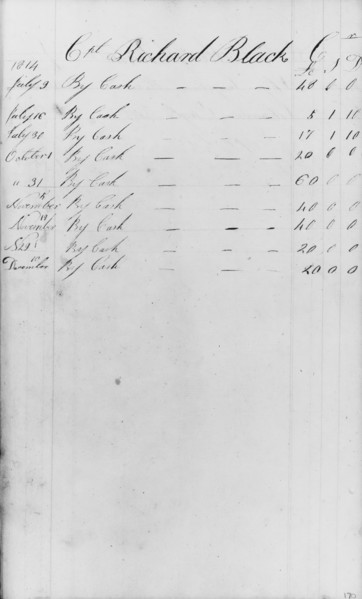 Cpl Richard Black Cr
1814 £ S D
July 9 By Cash — — — 40 0 0
July 16 By Cash — — — 5 1 10
July 30 By Cash — — — 17 1 10
October 1 By Cash — — — 20 0 0
" 31 By Cash — — — 60 0 0
November By Cash — — — 40 0 0
November By Cash — — — 40 0 0
By Cash — — — 20 0 0
December By Cash — — — 20 0 0